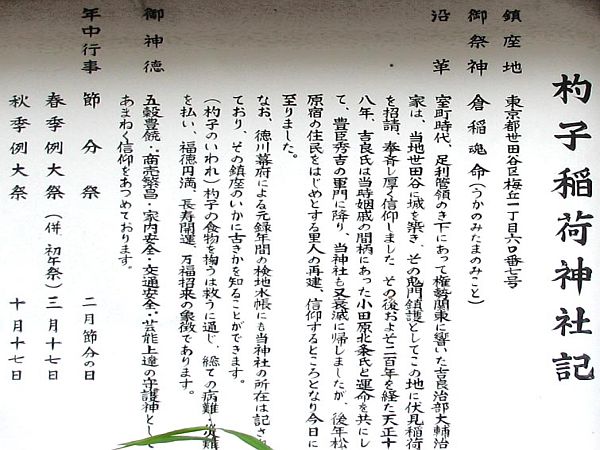 杓子稲荷神社記
鎮座地 東京都世田谷区梅丘一丁目六〇番七号
御祭神 倉稲魂命（うかのみたまのみこと）
沿革 室町時代、足利管領のき下にあって権勢関東に響いた吉良治部大輔治
家は、当地世田谷に城を築き、その鬼門鎮護としてこの地に伏見稲荷
を招請、奉斉し厚く信仰しました。その後およそ二百年を経た天正十
八年、吉良氏は当時姻戚の間柄にあった小田原北条氏と運命を共にし
て、豊臣秀吉の軍門に降り、当神社も又衰滅に帰しましたが、後年松
原宿の住民をはじめとする里人の再建、信仰するところとなり今日に
至りました。
なお、徳川幕府による元録年間の検地水帳にも当神社の所在は記され
ており、その鎮座のいかに古きかを知ることができます。
（杓子のいわれ）杓子の食物を掬うは救うに通じ、総ての病難・災難
を払い、福徳円満、長寿開運、万福招来の象徴であります。
御神徳 五穀豊穣・商売繁昌・家内安全・交通安全・芸能上達の守護神として
あまねく信仰をあつめております。
年中行事 節分祭 二月節分の日
春季例大祭（併、初午祭）三月十七日
秋季例大祭 十月十七日